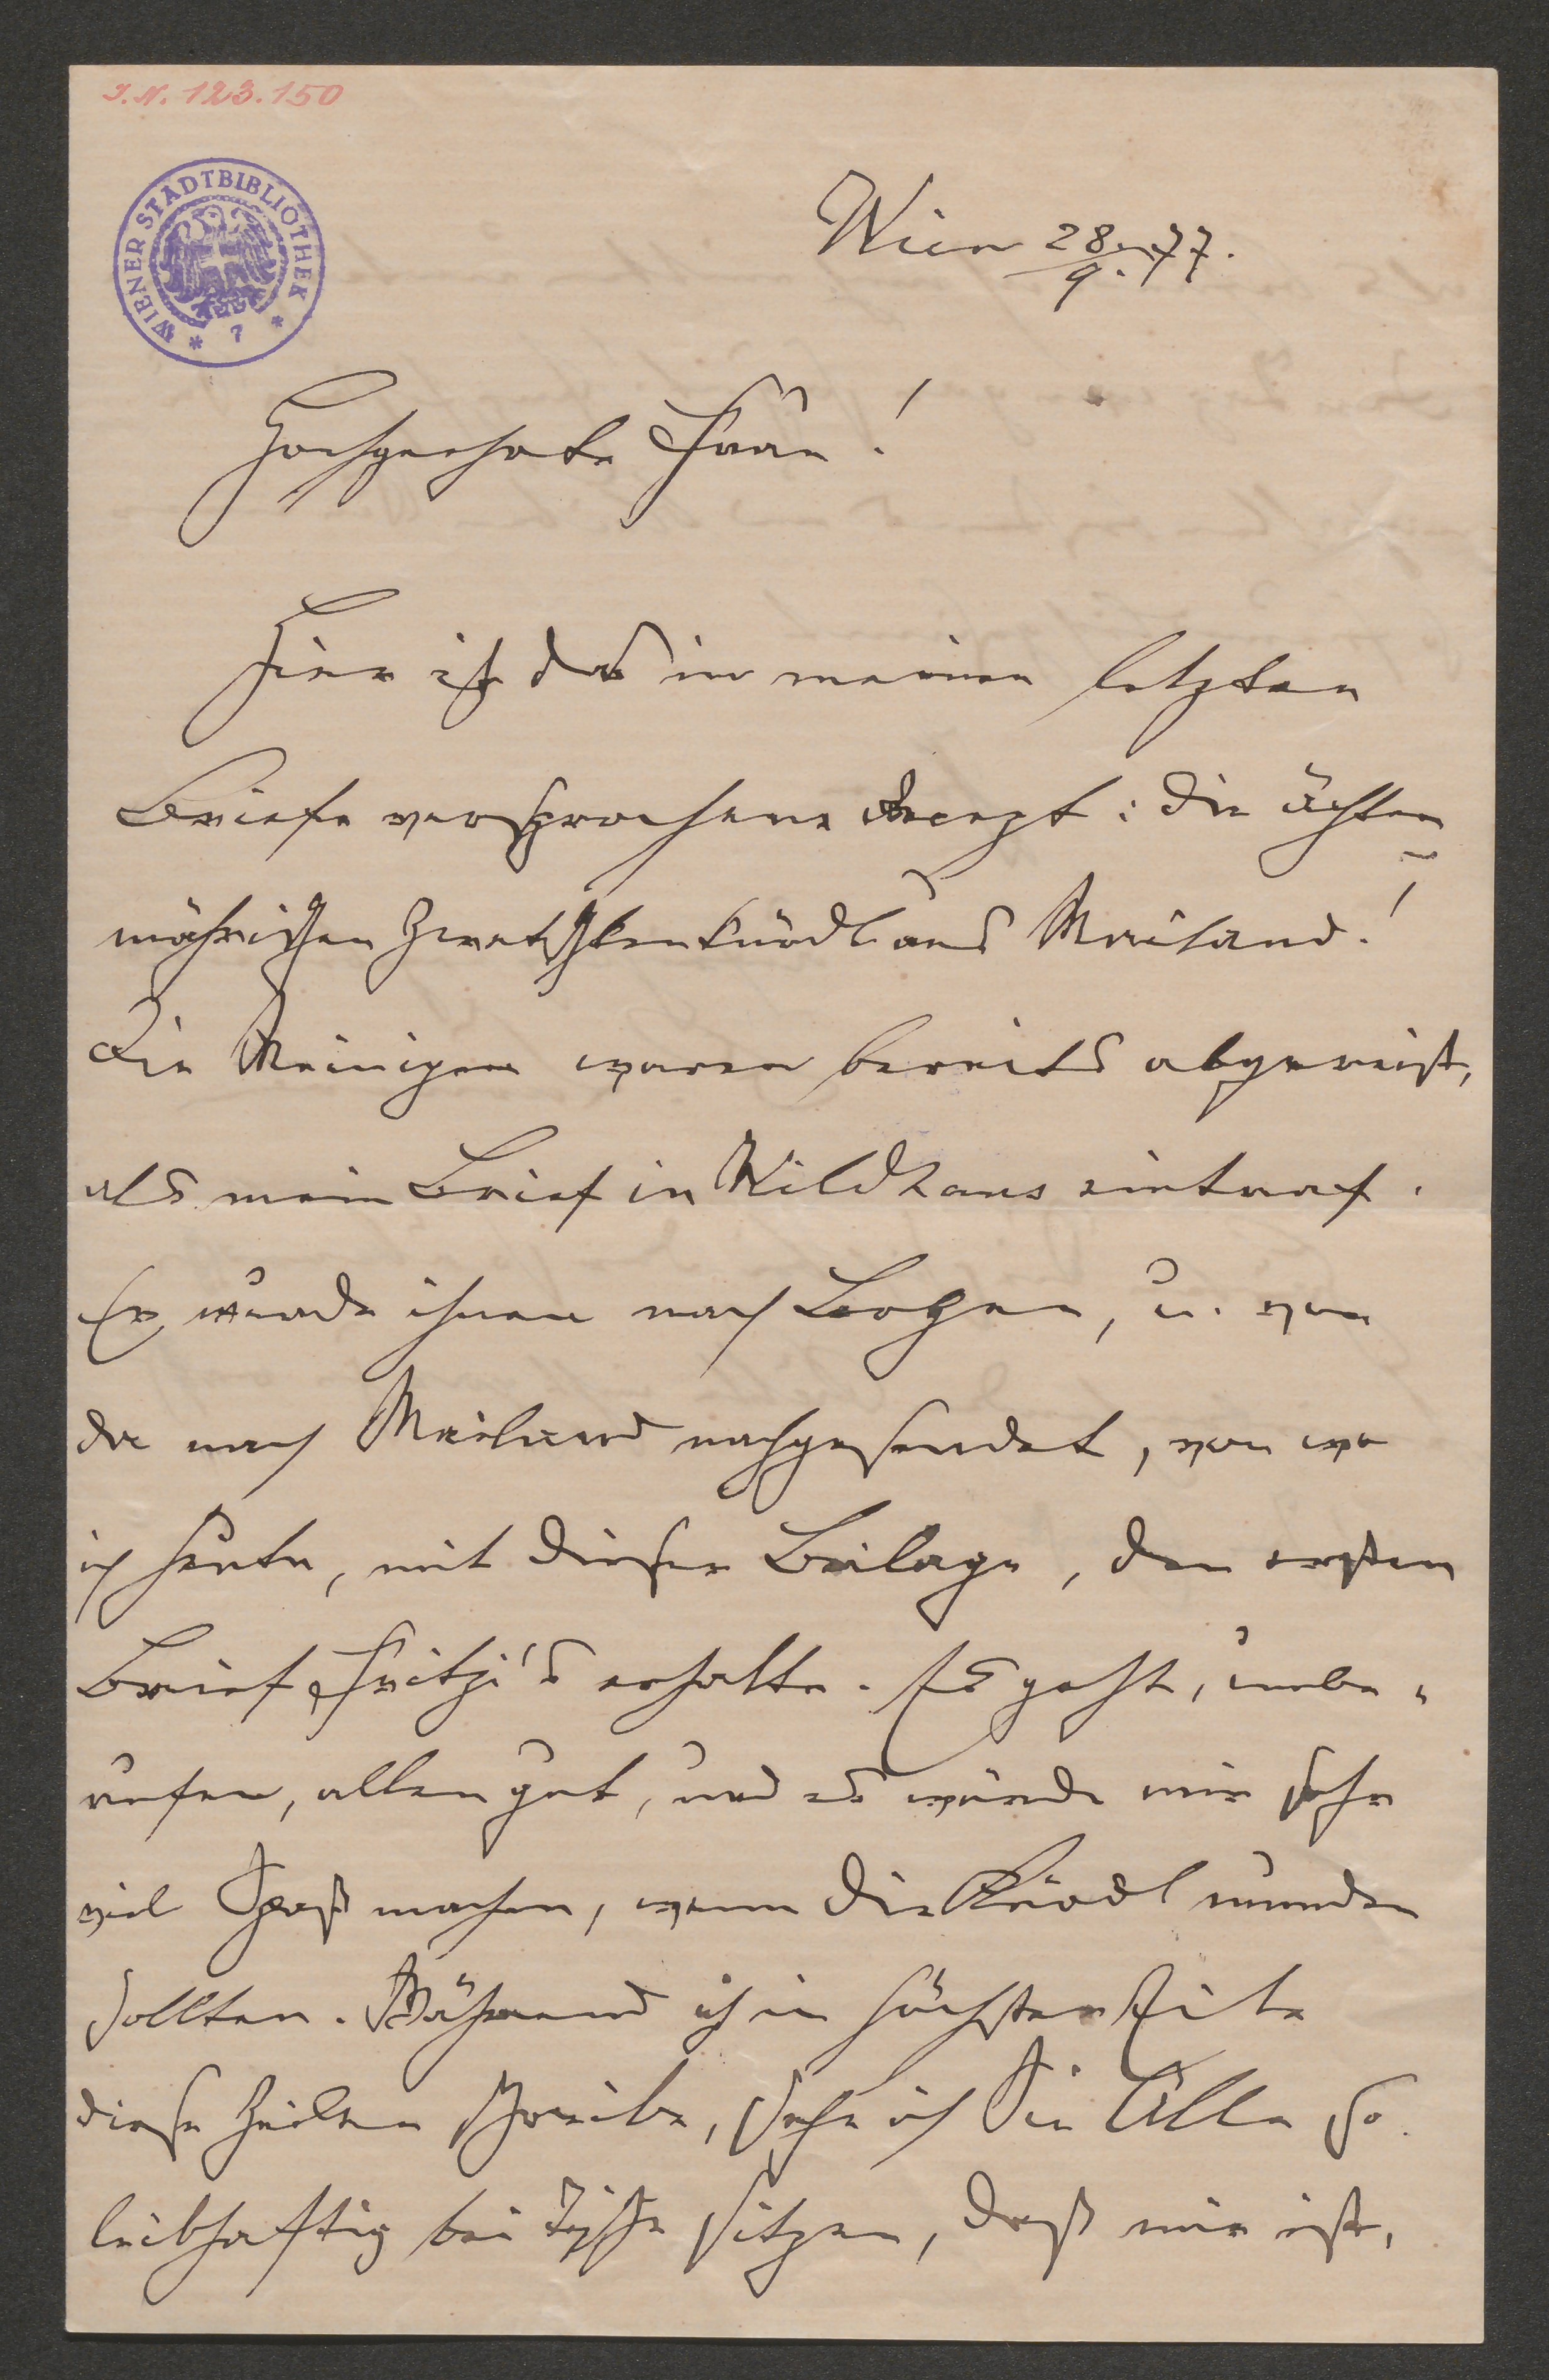 I.N. 123.150
WIENER STADTBIBLIOTHEK
* 7 *
Wien 28./9. 77.
Hochgeehrte Frau!
Hier ist das in meinem letzten
Briefe versprochene Recept: die ächten
mährischen Zwetschkenknödl aus Mailand!
Die Meinigen waren bereits abgereist,
als mein Brief in Wildhaus eintraf.
Er wurde ihnen nach Bozen, u. von
da nach Mailand nachgesendet, von wo
ich heute, mit dieser Beilage, den ersten
Brief Fritzi's erhalte. Es geht, unbe-
rufen, allen gut, und es würde mir sehr
viel Spaß machen, wenn die Knödl munden
sollten. Während ich in höchster Eile
diese Zeilen schreibe, sehe ich Sie Alle so
leibhaftig bei Tische sitzen, daß mir ist,